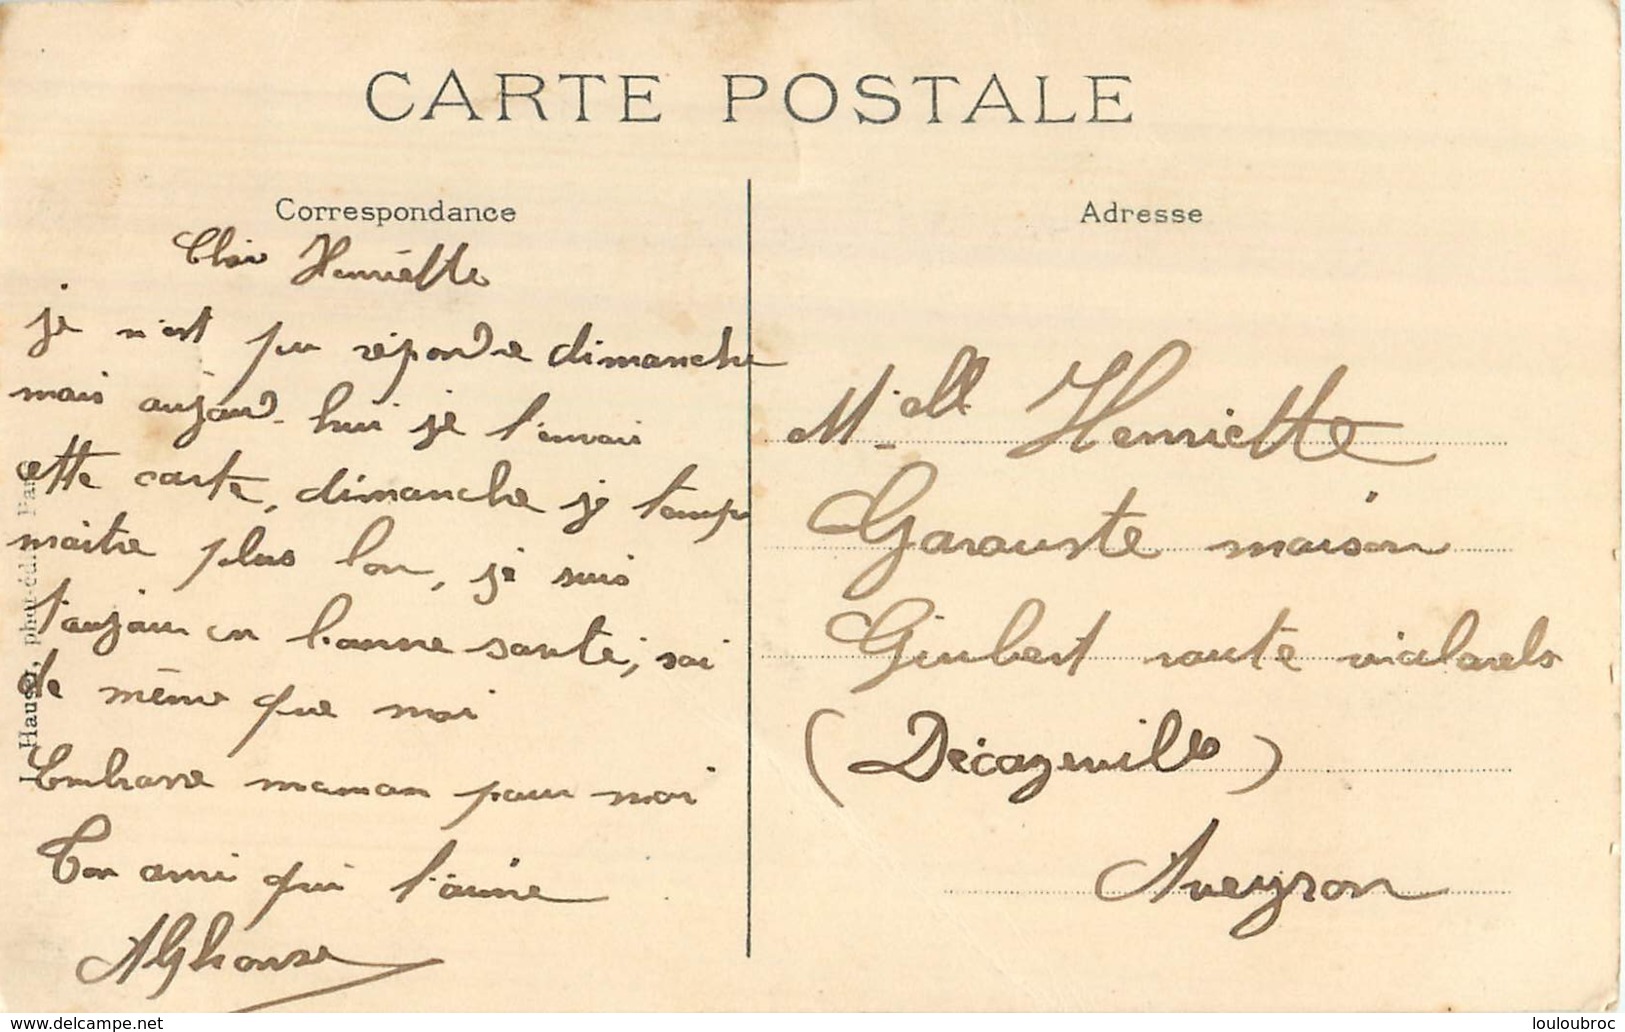 CARTE POSTALE
Correspondance
Cher Henriette
je n'est pu répondre dimanche
mais aujourd-hui je t'envoi
cette carte, dimanche je
maitre plus lon, je suis
toujour en bonne sante, soi
de même que moi
Embrasse maman pour moi
Ton ami qui t'aime
Alphonse
Adresse
M.elle Henriette
Garouste maison
Ginbert route vialarels
(Decazeville)
Aveyron
Hauser, phot-éd.
delcampe.net
louloubroc